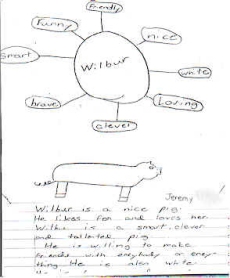 friendly
funny
nice
smart
Wilbur
white
brave
Loving
clever
Jeremy
Wilbur is a nice pig.
He likes fun and loves her
Wilbur is a smart, clever
and talented pig
He is willing to make
friends with
thing. He is also white